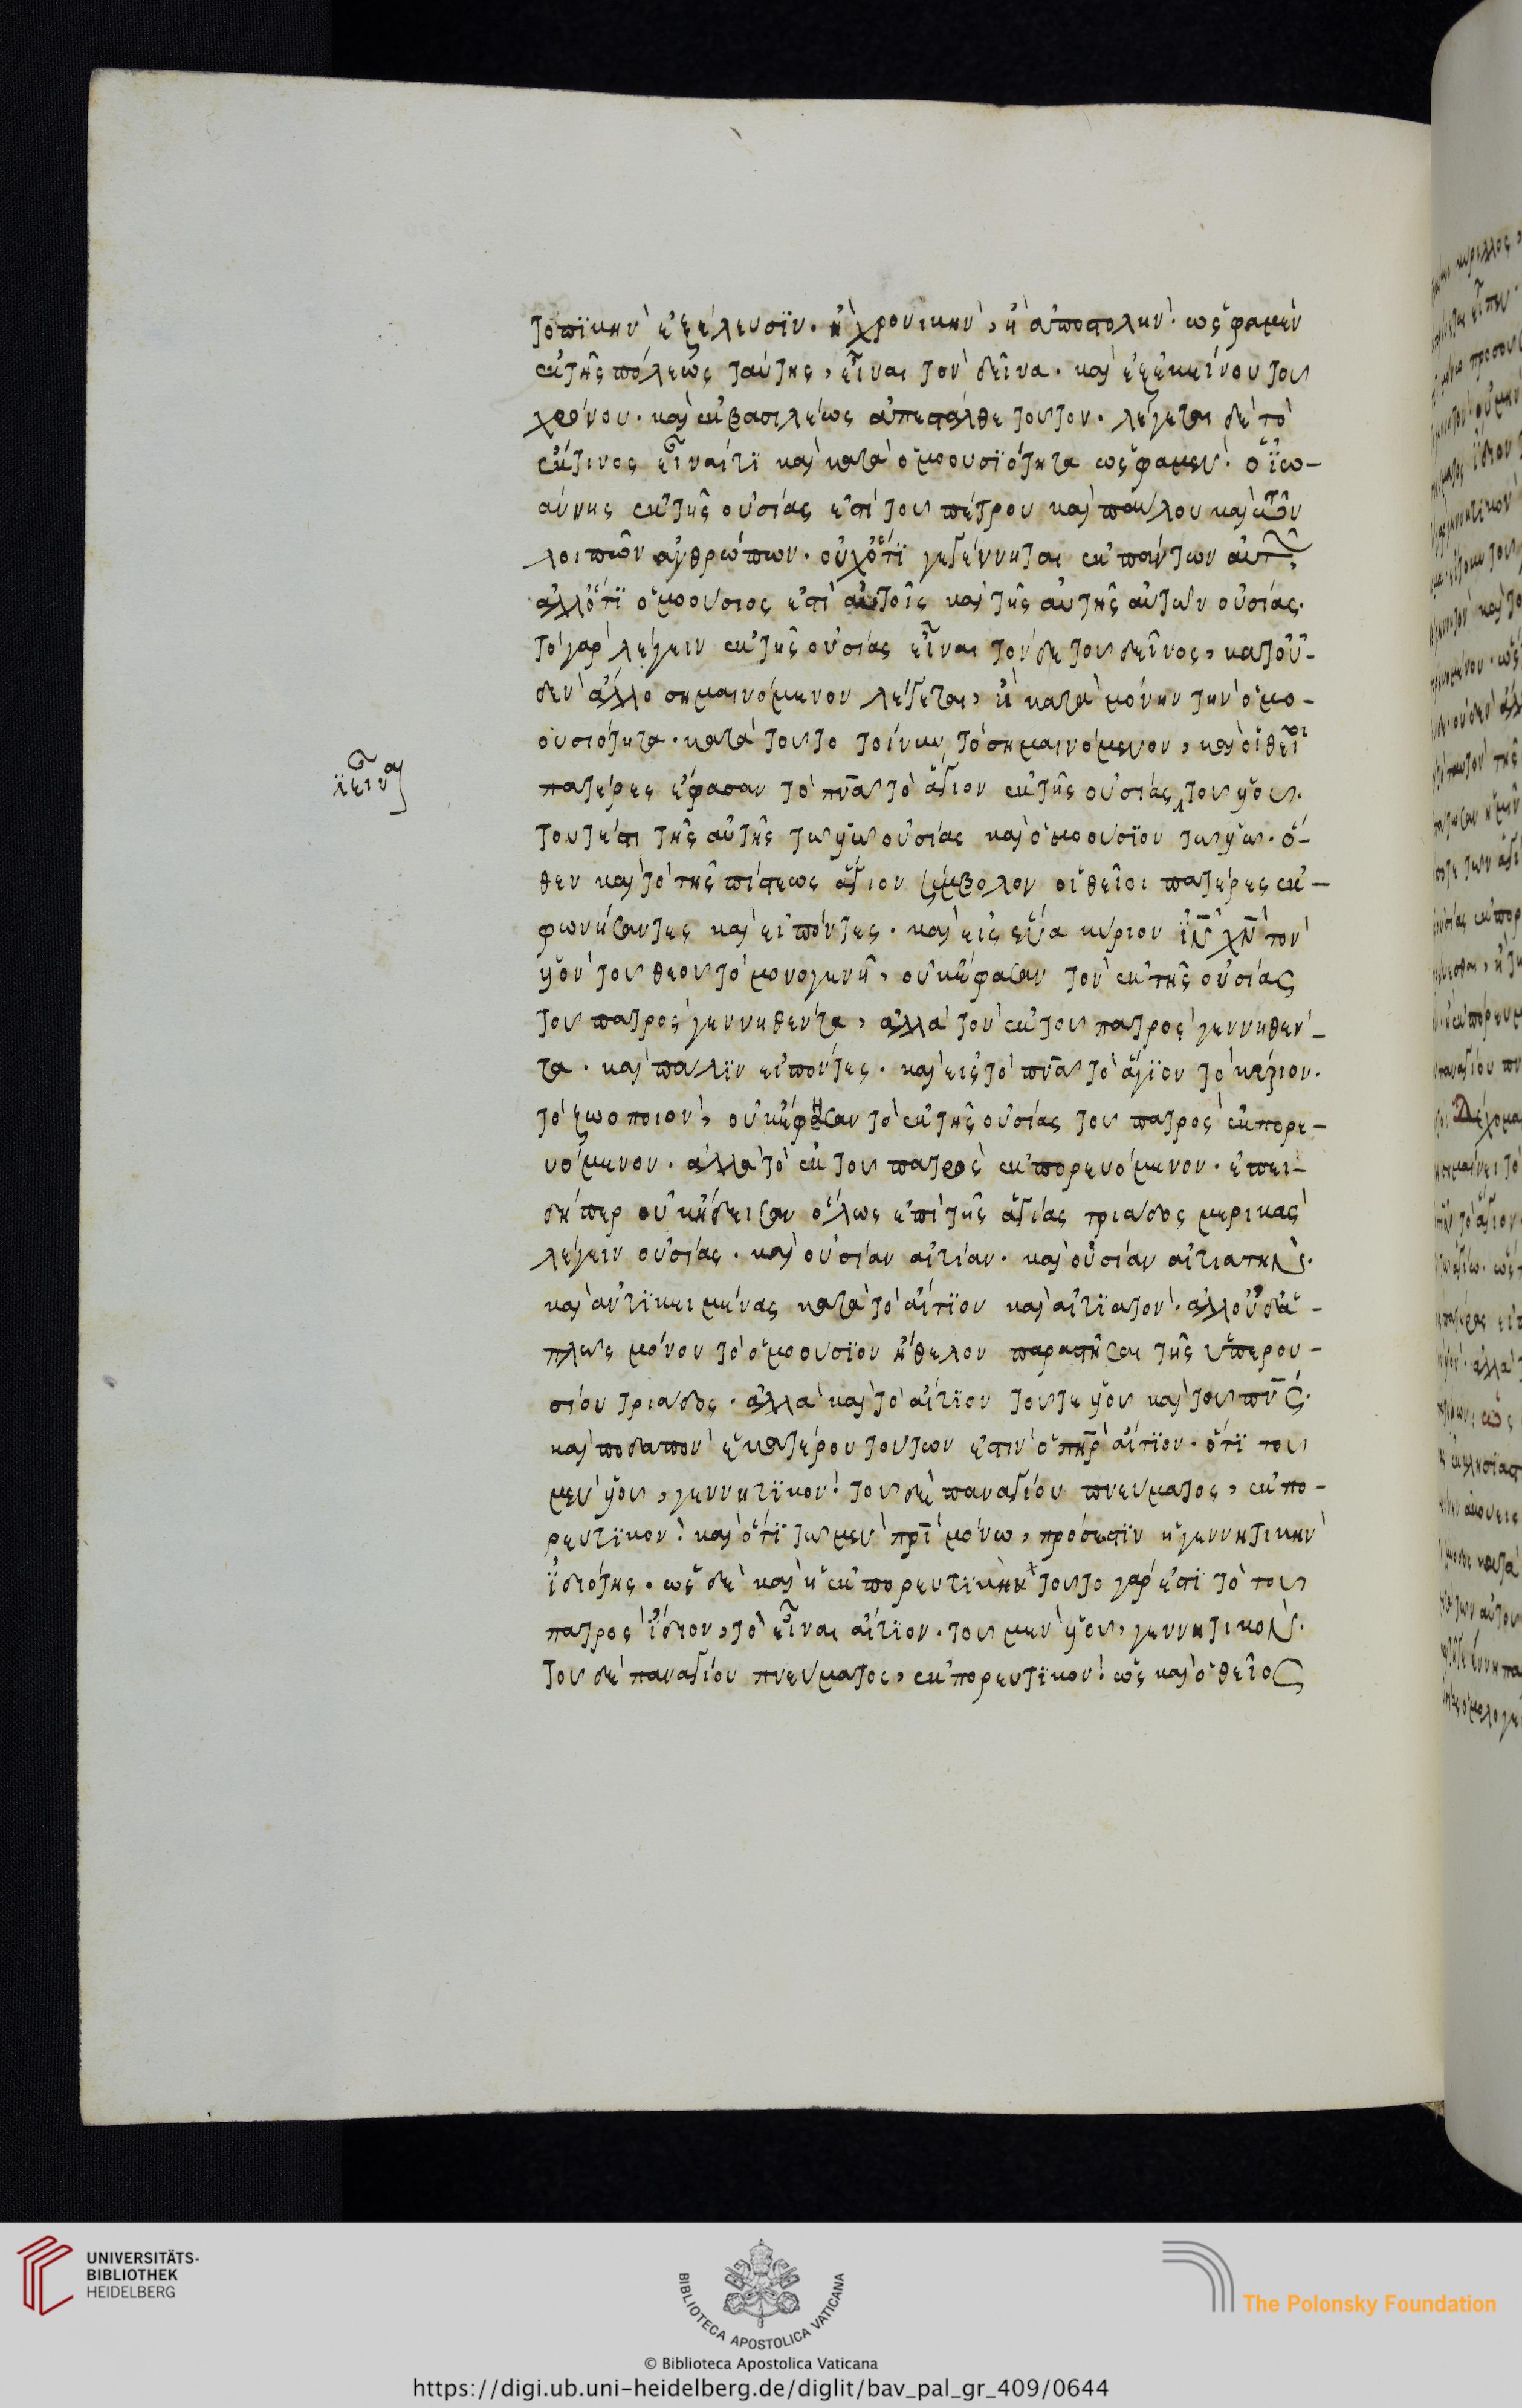 τοπϊκὴν ἐξέλευσϊν. ἢ χρονικὴν, ἢ ἀποστολὴν. ὥς φαμὲν
ἐκ τῆς πόλεως ταύτης, εἶναι τὸν δεῖνα. καὶ ἐξ ἐκείνου τοῦ
χρόνου. καὶ ἐκ βασιλέως ἀπεστάλθε τοῦτον. λέγεται δὲ τὸ
ἔκ τινος εἶναί τϊ καὶ κατὰ ὁμοουσϊότητα ὥς φαμεν. ὁ ἰω-
άννης ἐκ τῆς οὐσίας ἐστὶ τοῦ πέτρου καὶ παύλου καὶ τῶν
λοιπῶν ἀνθρώπων. οὐχ ὅτϊ γεγέννηται ἐκ πάντων αὐτῶν,
ἀλλ' ὅτϊ ὁμοούσιος ἐστὶ αὐτοῖς καὶ τῆς αὐτῆς αὐτῶν οὐσίας.
τὸ γὰρ λέγειν ἐκ τῆς οὐσίας εἶναι τόνδε τοῦ δεῖνος, κατ' οὐ-
δὲν ἄλλο σημαινόμενον λέγεται, ἢ κατὰ μόνην τὴν ὁμο-
ουσιότητα. κατὰ τοῦτο τοίνυν τὸ σημαινόμενον, καὶ οἱ θεῖοι
πατέρες ἔφασαν τὸ πνα τὸ ἅγιον ἐκ τῆς οὐσίας τοῦ υἱοῦ.
ϊεἶναι
τουτέστι τῆς αὐτῆς τῶ υἱῶ οὐσίας καὶ ὁμοουσϊον τῶ υἱῶ. ὅ-
θεν καὶ τὸ τῆς πίστεως ἅγιον σύμβολον οἱ θεῖοι πατέρες ἐκ-
φωνήσαντες καὶ εἰπόντες. καὶ εἰς ἕνα κύριον ϊν χν τὸν
υἱὸν τοῦ θεοῦ τὸ μονογενῆ, οὐκ ἔφασαν τὸν ἐκ τῆς οὐσίας
τοῦ πατρὸς γεννηθέντα, ἀλλὰ τὸν ἐκ τοῦ πατρὸς γεννηθέν-
τα. καὶ πάλϊν εἰπόντες. καὶ εἰς τὸ πνα τὸ ἅγϊον τὸ κύριον.
τὸ ζωοποιὸν, οὐκ ἔφησαν τὸ ἐκ τῆς οὐσίας τοῦ πατρὸς ἐκπορε-
υόμενον. ἀλλὰ τὸ ἐκ τοῦ πατρὸς ἐκπορευόμενον. ἐπει-
δήπερ οὐκ ἤδεισαν ὅλως ἐπὶ τῆς ἁγίας τριάδος μερικὰς
λέγειν οὐσίας. καὶ οὐσίαν αἰτίαν. καὶ οὐσίαν αἰτιατὴν.
καὶ ἀντϊκειμένας κατὰ τὸ αἴτϊον καὶ αἰτϊατὸν. ἀλλ' οὐδ' ἁ-
πλῶς μόνον τὸ ὁμοουσϊον ἤθελον παραστῆσαι τῆς ὑπερου-
σίου τριάδος. ἀλλὰ καὶ τὸ αἴτϊον τοῦ τε υἱοῦ καὶ τοῦ πνς.
καὶ ποδαπὸν ἑκατέρου τούτων ἐστὶν ὁ πηρ αἴτϊον. ὅτϊ τοῦ
μὲν υἱοῦ, γεννητϊκὸν. τοῦ δὲ παναγίου πνεύματος, ἐκπο-
ρευτϊκὸν. καὶ ὅτϊ τῶ μὲν πρϊ μόνω, πρόσεστϊν ἡ γεννητικὴν
ϊδιότης. ὡς δὲ καὶ ἡ ἐκπορευτϊκὴ τοῦτο γάρ ἐστϊ τὸ τοῦ
πατρὸς ἴδιον, τὸ εἶναι αἴτϊον. τοῦ μὲν υἱοῦ, γεννητικὸν.
τοῦ δὲ παναγίου πνεύματος, ἐκπορευτϊκὸν. ὡς καὶ ὁ θεῖος
UNIVERSITÄTS-
BIBLIOTHEK
HEIDELBERG
BIBLIOTECA APOSTOLICA VATICANA
The Polonsky Foundation
© Biblioteca Apostolica Vaticana
https://digi.ub.uni-heidelberg.de/diglit/bav_pal_gr_409/0644